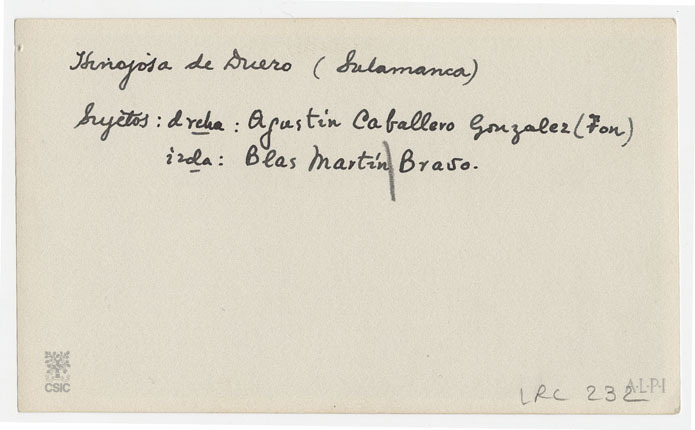 Hinojosa de Duero (Salamanca)
Sujetos: drcha: Agustín Caballero Gonzalez (Fon)
izda: Blas Martín Bravo.
CSIC
LRC 232
A·L·P·I